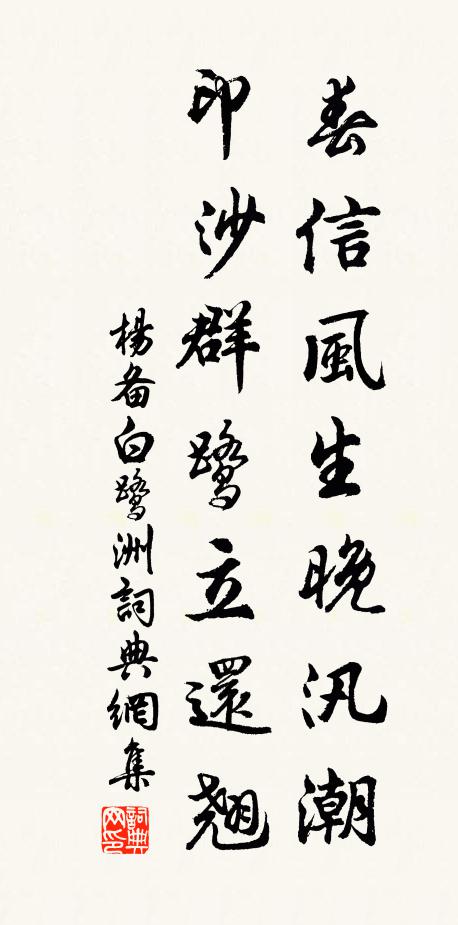 春信風生晚汛潮
印沙群鷺立還翹
楊备白鷺洲詞典網集
詞典網印